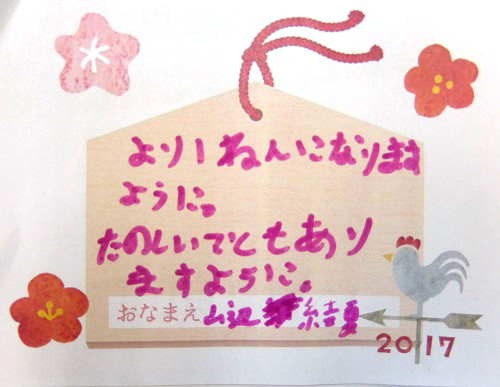 より1ねんになります
ように。
たのしいでともあり
ますように。
おなまえ 山辺 結夏
2017